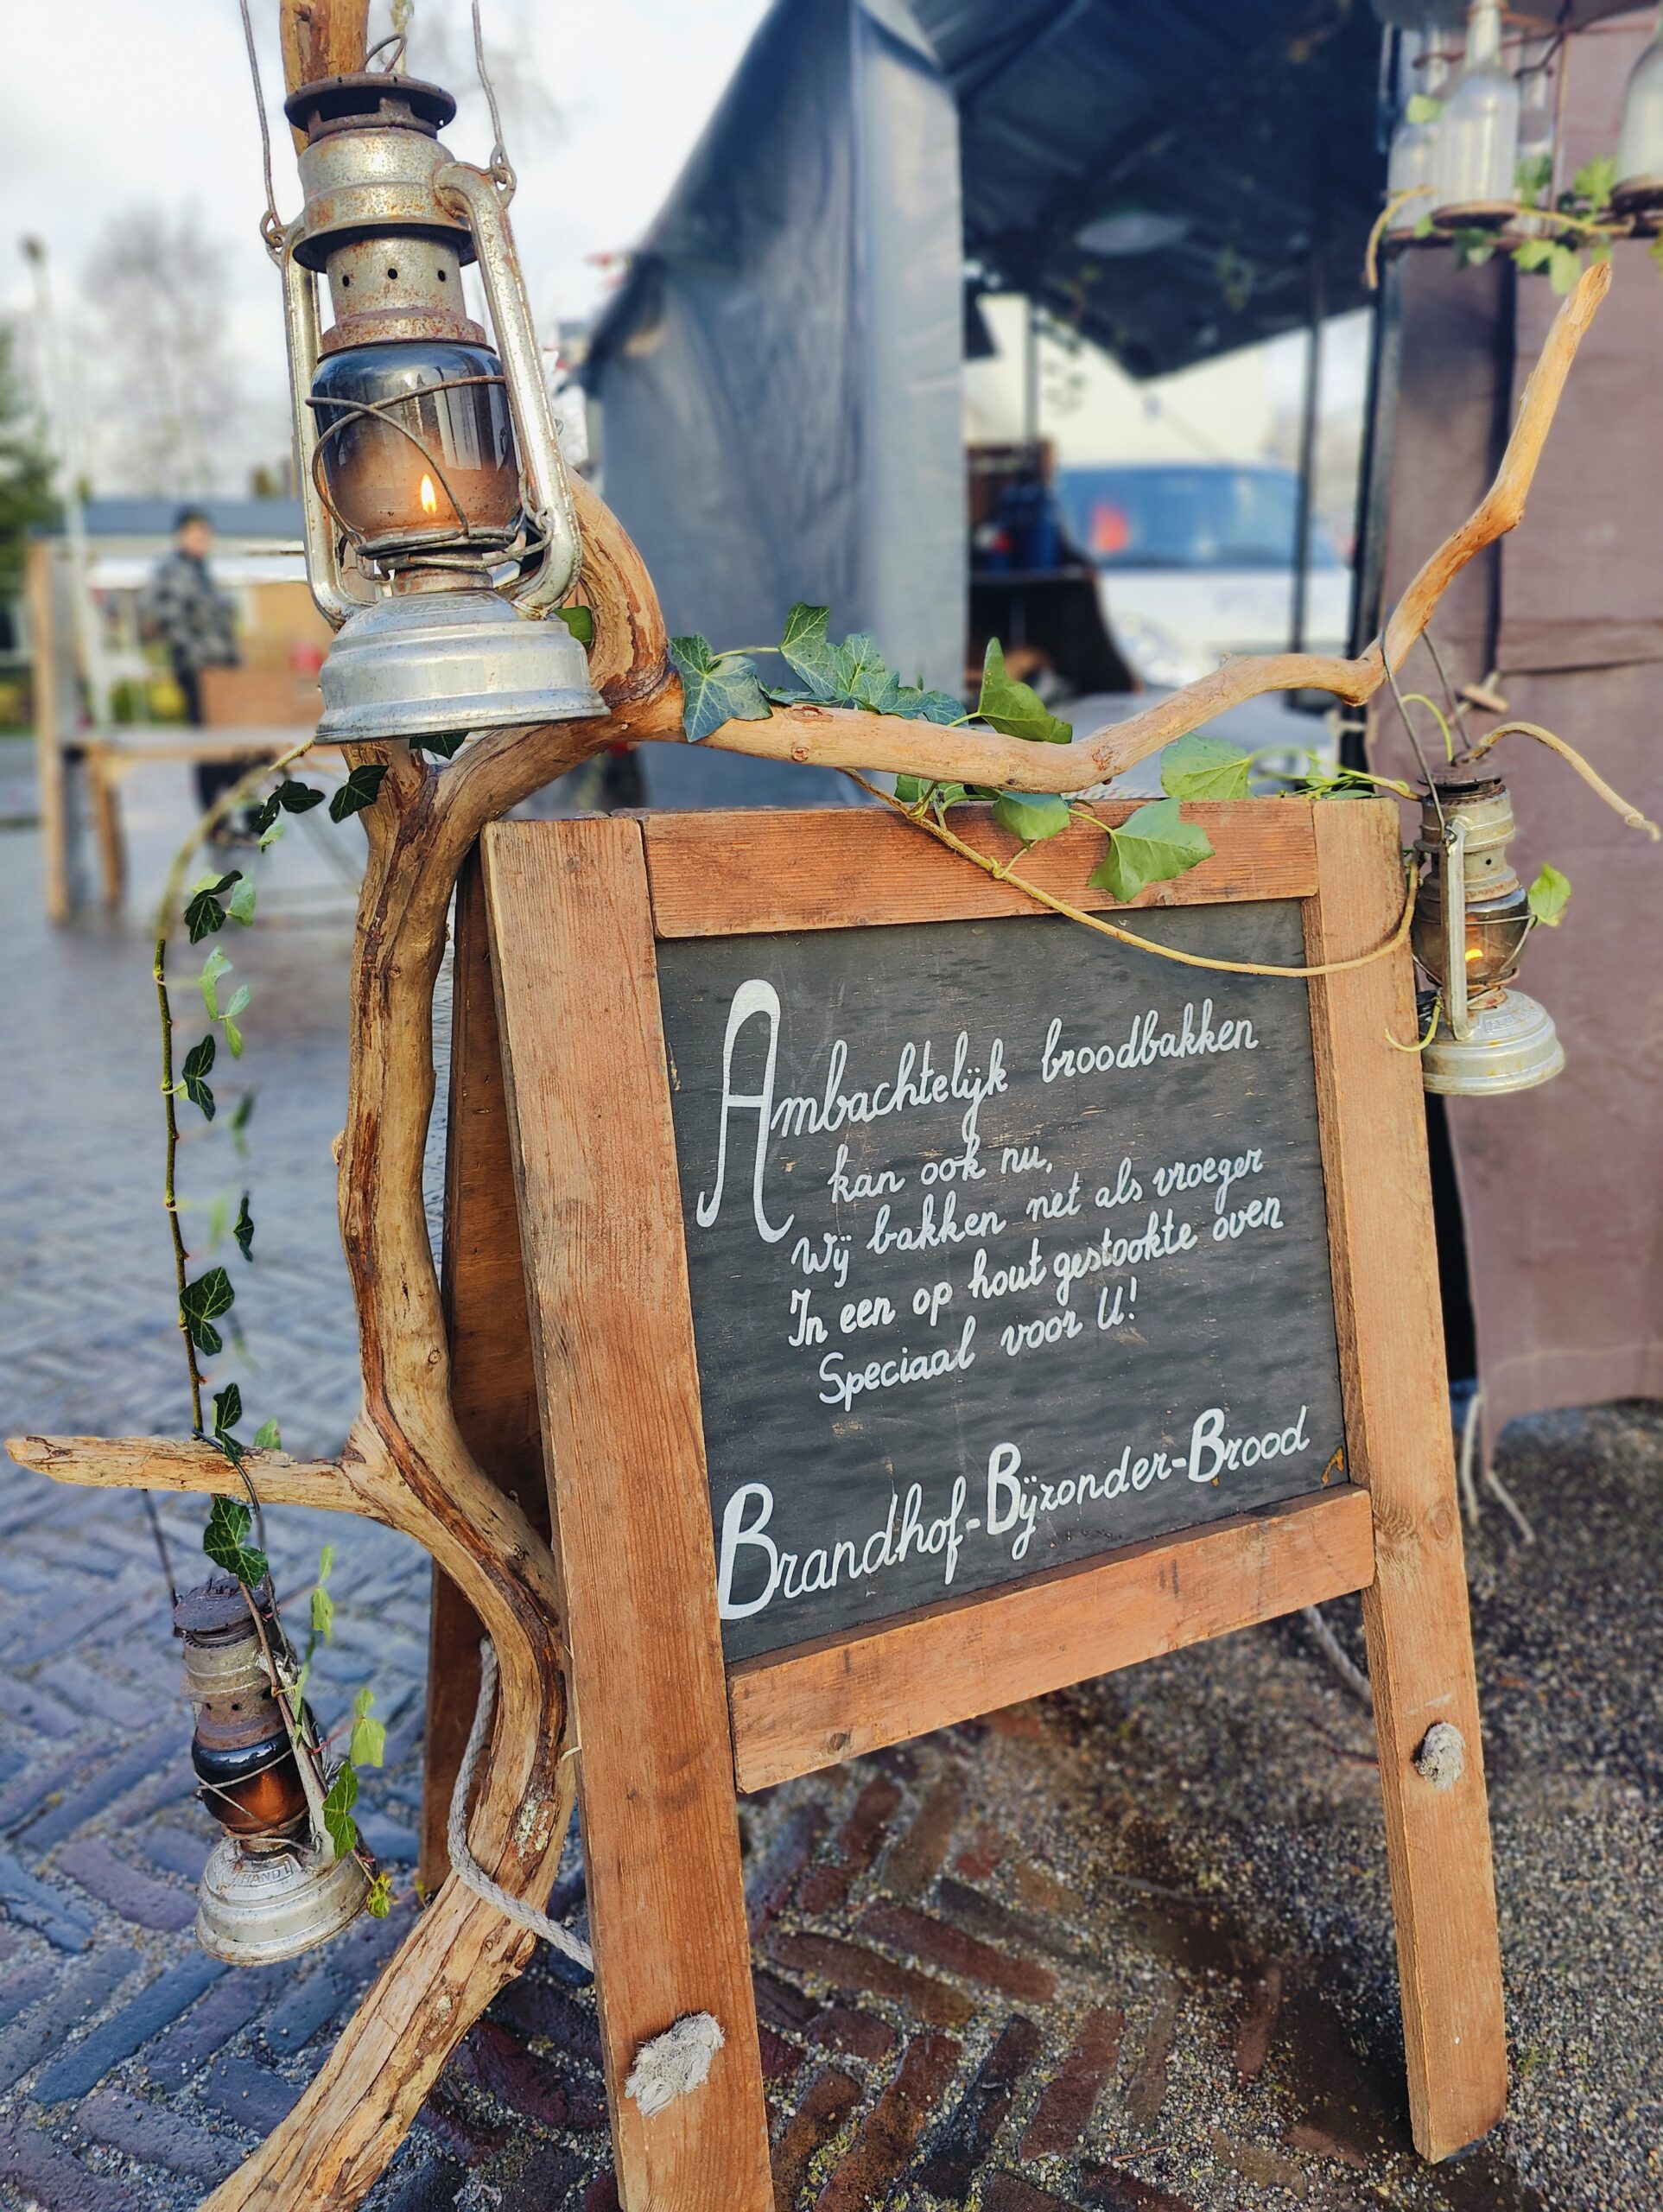 Ambachtelijk broodbakken
kan ook nu,
Wij bakken net als vroeger
In een op hout gestookte oven
Speciaal voor U!
Brandhof-Bijzonder-Brood